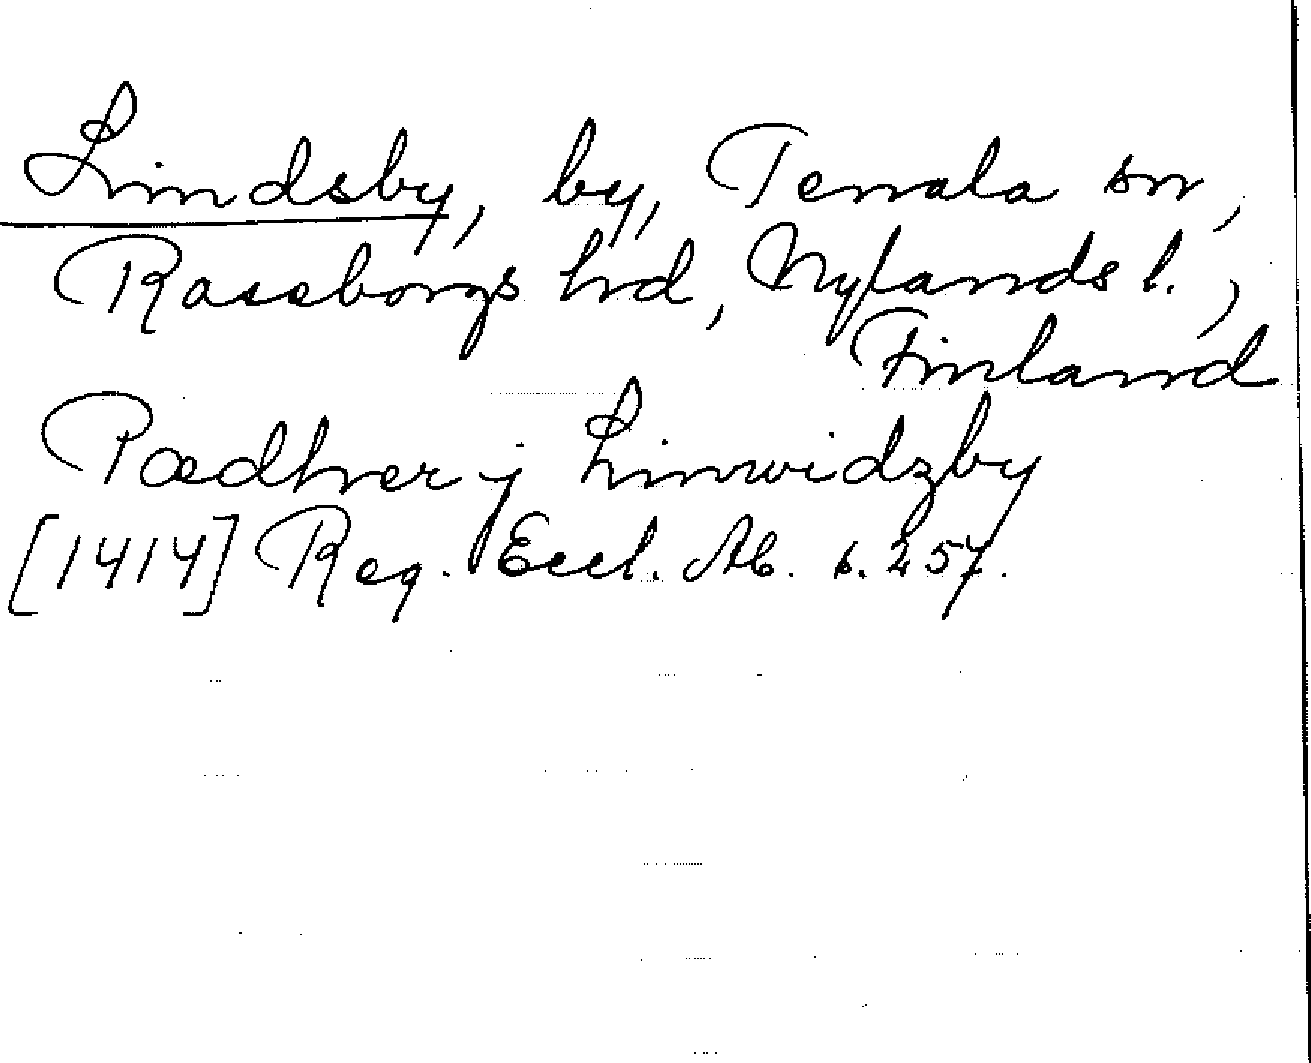 Lindsby, by, Tenala sn,
Raseborgs hrd, Nylands l.,
Finland
Pædhver j Linwidzby
[1414] Reg. Eccl. Ab. s. 257.